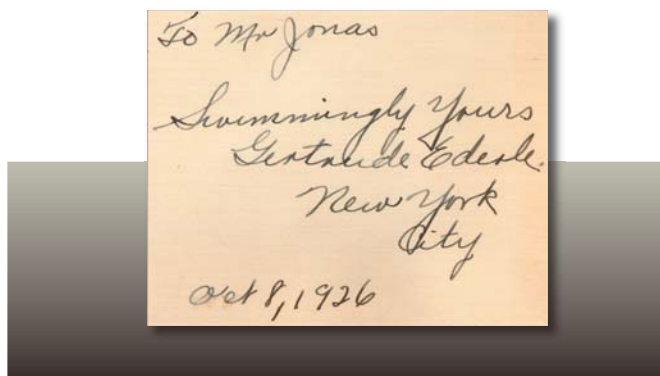 To Mr Jonas
Swimmingly Yours
Gertrude Ederle.
New York
City
Oct 8, 1926